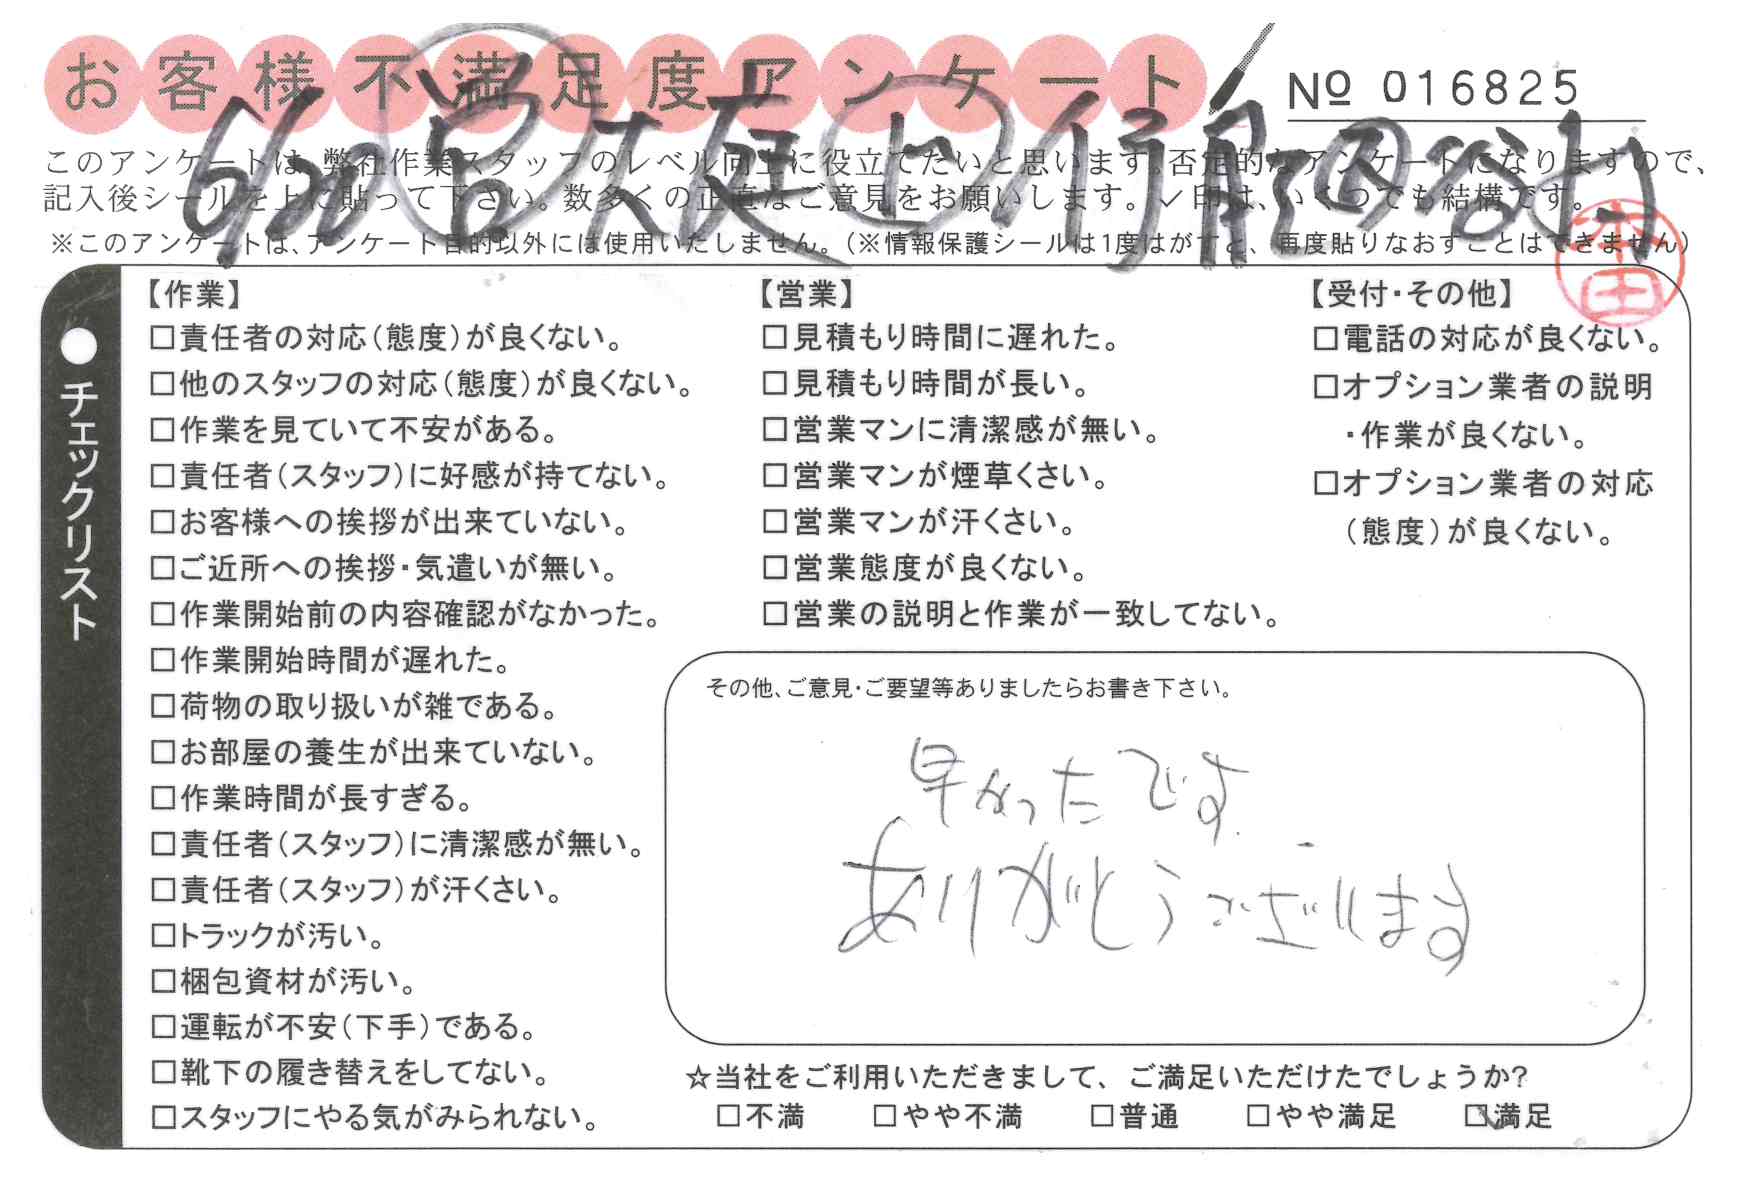 お客様不満足度アンケート
№ 016825
このアンケートは、弊社作業スタッフのレベル向上に役立てたいと思います。否定的なアンケートになりますので、
記入後シールを上に貼って下さい。数多くの正直なご意見をお願いします。✓印は、いくつでも結構です。
※このアンケートは、アンケート目的以外には使用いたしません。（※情報保護シールは1度はがすと、再度貼りなおすことはできません）
本田
●チェックリスト
【作業】
□責任者の対応（態度）が良くない。
□他のスタッフの対応（態度）が良くない。
□作業を見ていて不安がある。
□責任者（スタッフ）に好感が持てない。
□お客様への挨拶が出来ていない。
□ご近所への挨拶・気遣いが無い。
□作業開始前の内容確認がなかった。
□作業開始時間が遅れた。
□荷物の取り扱いが雑である。
□お部屋の養生が出来ていない。
□作業時間が長すぎる。
□責任者（スタッフ）に清潔感が無い。
□責任者（スタッフ）が汗くさい。
□トラックが汚い。
□梱包資材が汚い。
□運転が不安（下手）である。
□靴下の履き替えをしてない。
□スタッフにやる気がみられない。
【営業】
□見積もり時間に遅れた。
□見積もり時間が長い。
□営業マンに清潔感が無い。
□営業マンが煙草くさい。
□営業マンが汗くさい。
□営業態度が良くない。
□営業の説明と作業が一致してない。
【受付・その他】
□電話の対応が良くない。
□オプション業者の説明
・作業が良くない。
□オプション業者の対応
（態度）が良くない。
その他、ご意見・ご要望等ありましたらお書き下さい。
早かったです
ありがとうございます
☆当社をご利用いただきまして、ご満足いただけたでしょうか？
□不満 □やや不満 □普通 □やや満足 ☑満足